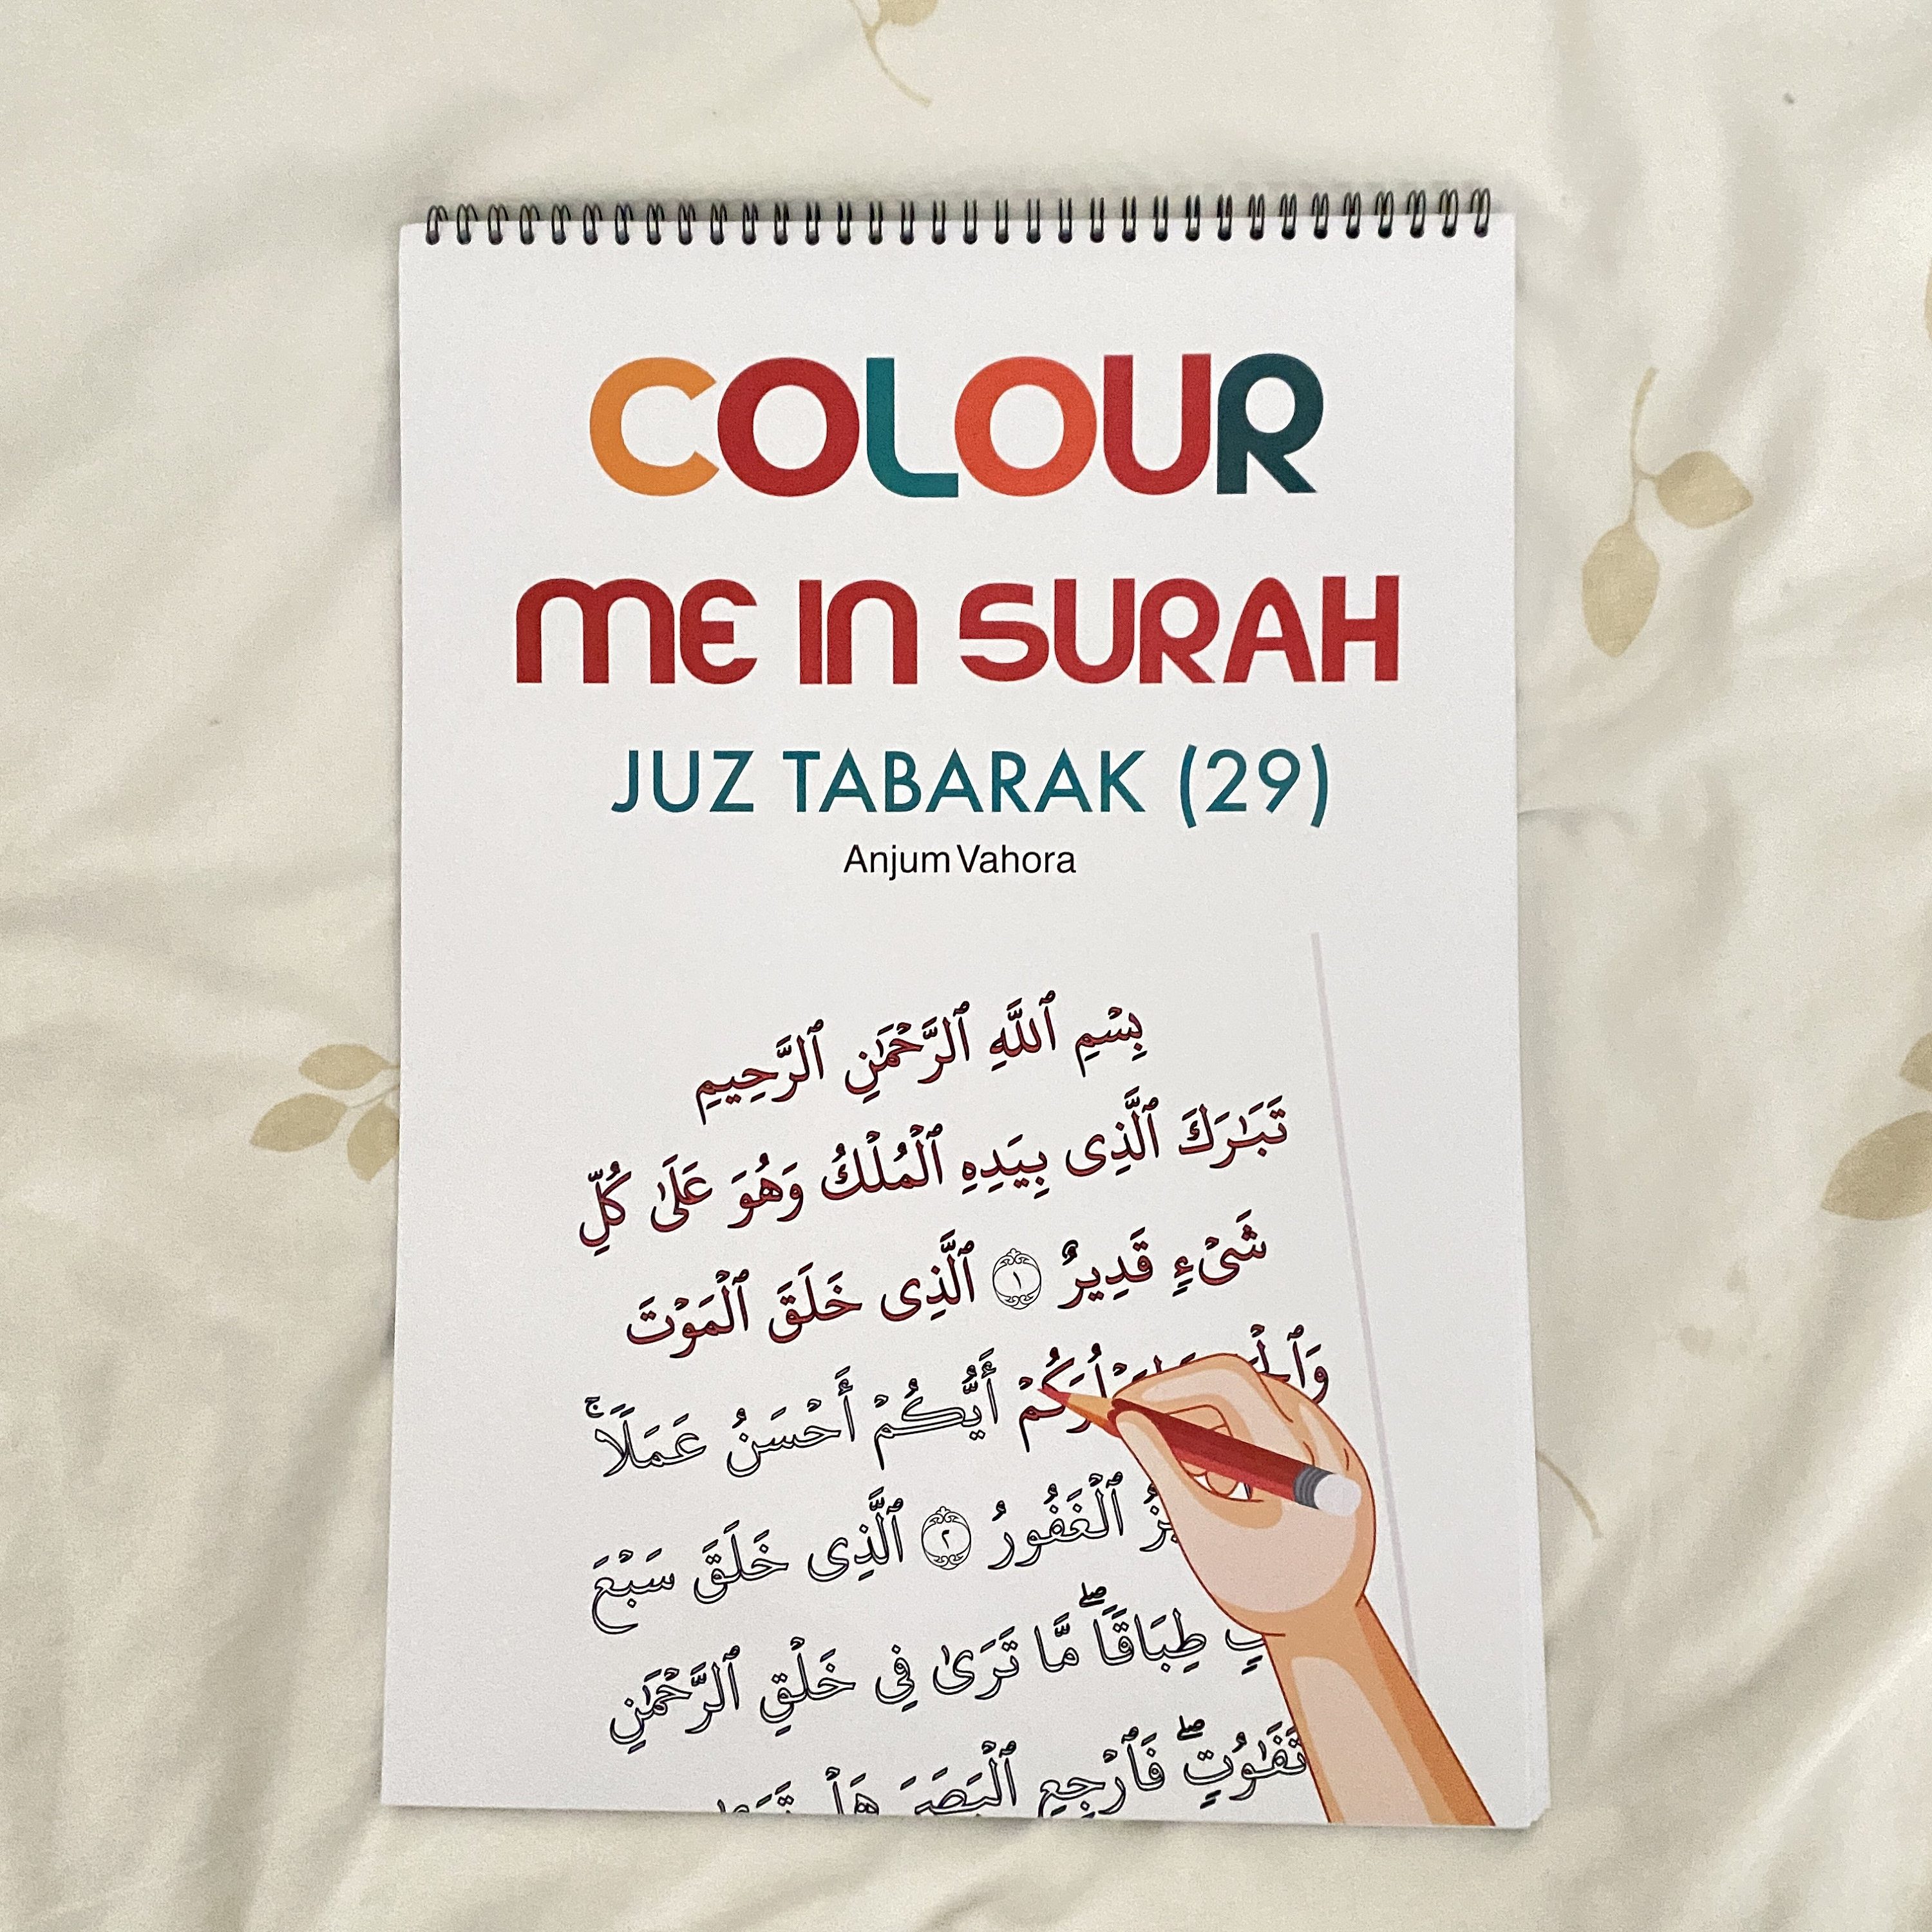 COLOUR
ME IN SURAH
JUZ TABARAK (29)
Anjum Vahora
بِسْمِ ٱللَّهِ ٱلرَّحْمَٰنِ ٱلرَّحِيمِ
تَبَٰرَكَ ٱلَّذِى بِيَدِهِ ٱلْمُلْكُ وَهُوَ عَلَىٰ كُلِّ
شَىْءٍ قَدِيرٌ ١ ٱلَّذِى خَلَقَ ٱلْمَوْتَ
أَيُّكُمْ أَحْسَنُ عَمَلًا ۚ
ٱلْغَفُورُ ٢ ٱلَّذِى خَلَقَ سَبْعَ
طِبَاقًا ۖ مَّا تَرَىٰ فِى خَلْقِ ٱلرَّحْمَٰنِ
تَفَٰوُتٍ ۖ فَٱرْجِعِ ٱلْبَصَرَ هَلْ تَرَىٰ